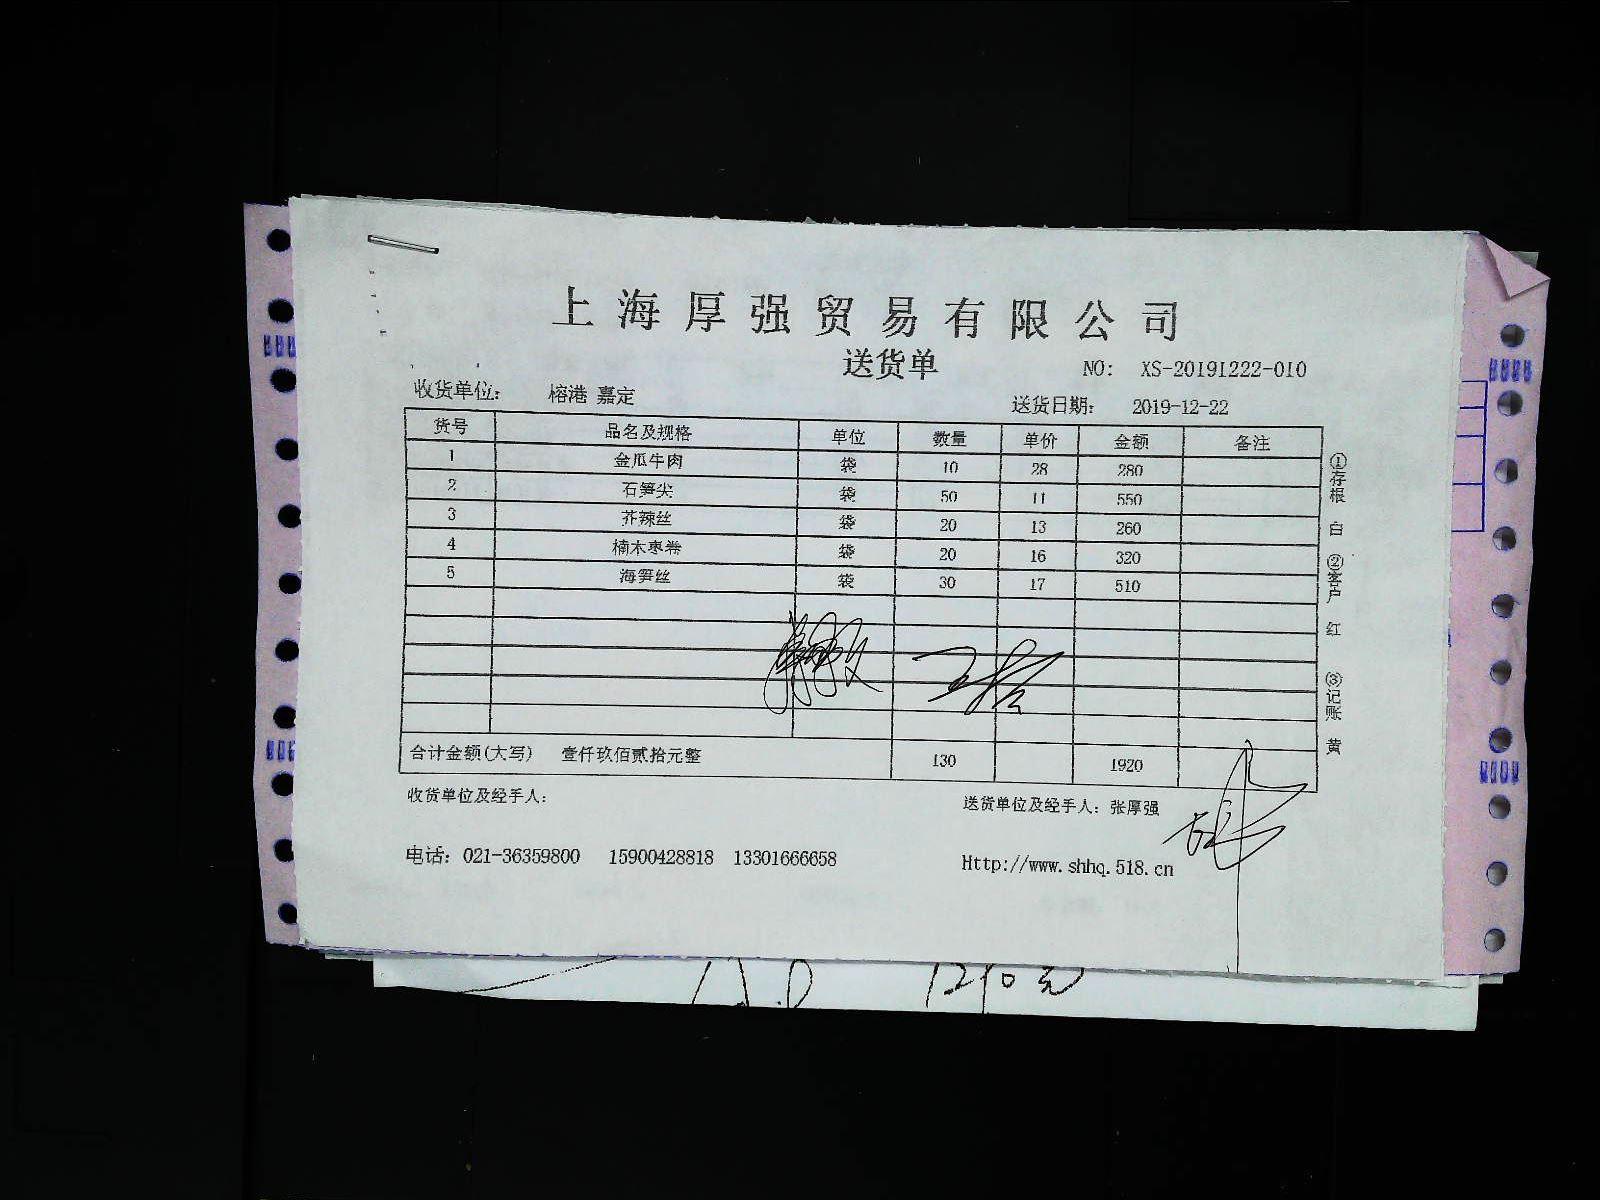 上海厚强贸易有限公司
送货单
NO: XS-20191222-010
收货单位: 榕港 嘉定
送货日期: 2019-12-22
货号 品名及规格 单位 数量 单价 金额 备注
1 金瓜牛肉 袋 10 28 280
2 石笋尖 袋 50 11 550
3 芥辣丝 袋 20 13 260
4 楠木枣卷 袋 20 16 320
5 海笋丝 袋 30 17 510
合计金额(大写) 壹仟玖佰贰拾元整 130 1920
收货单位及经手人:
送货单位及经手人: 张厚强
电话: 021-36359800 15900428818 13301666658
Http://www.shhq.518.cn
①存根 白 ②客户 红 ③记账 黄